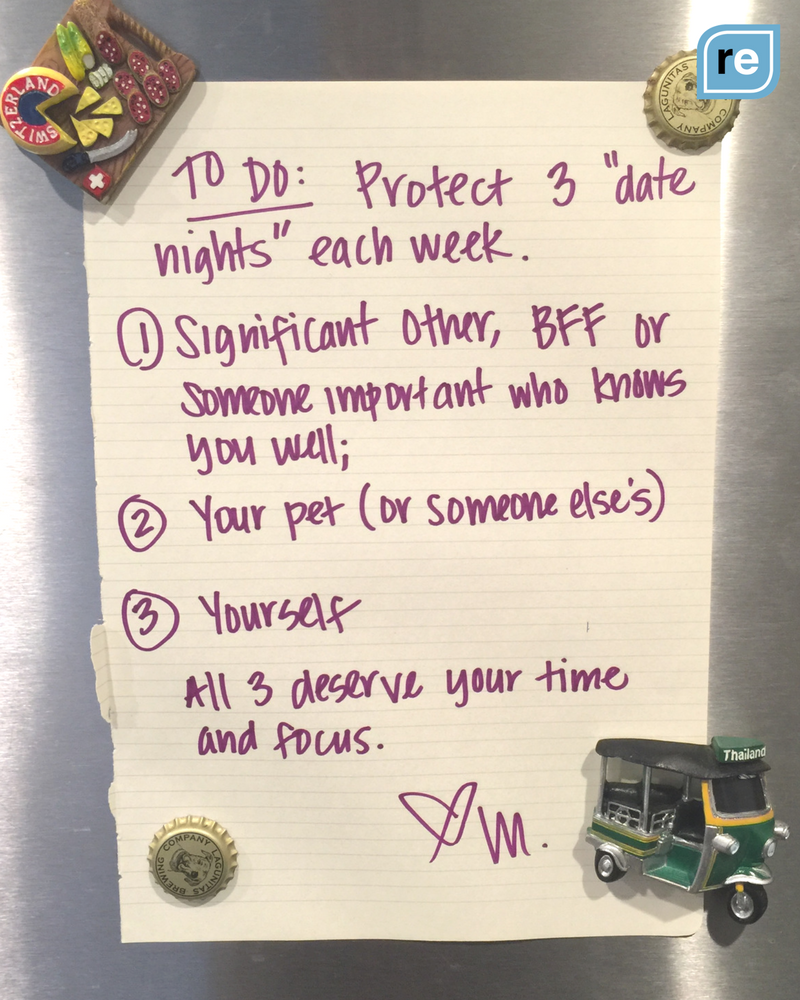 re
SWITZERLAND
COMPANY LAGUNITAS
TO DO: Protect 3 "date
nights" each week.
① Significant Other, BFF or
someone important who knows
you well;
② Your pet (or someone else's)
③ Yourself
All 3 deserve your time
and focus.
M.
Thailand
COMPANY LAGUNITAS BREWING